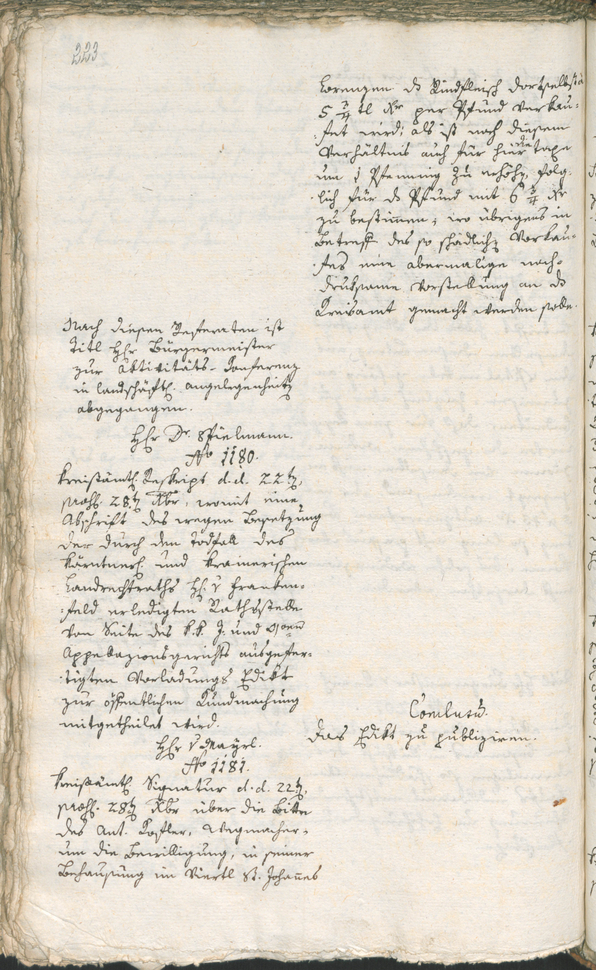 223
Lorenzen d. Rindfleisch dortselbst
5 3/4 tl Kr per Pfund verkau-
fet wird; als ist nach diesem
Verhältnis auch für hier die Taxe
um 1 Pfenning zu erhöhn, folg-
lich für d. Pfund mit 6 3/4 Kr
zu bestimmen; wo übrigens in
Betreff des so schädlichn Vorkau-
fes eine abermalige nach-
druksame Vorstellung an d.
Kreisamt gemacht werden solle.
Nach diesen Referaten ist
Titl Hr Bürgermeister
zur Aktivitäts-Konferenz
in landschäftl. Angelegenheitn
abgegangen.
Hr Dr. Spielmann.
No 1180.
Kreisämtl. Reskript d. d. 22tn,
präs. 28tn Xbr, womit eine
Abschrift des wegen Besetzung
der durch den Todfall des
Kärntner. und Krainerischen
Landrechtraths H. v Franken-
feld erledigten Rathsstelle
von Seite des k. k. I. und
Appellazionsgerichts ausgefer-
tigten Vorladungs Edikt
zur öffentlichen Kundmachung
mitgetheilet wird.
Conclusu.
Das Edikt zu publiziren.
Hr v Mayrl.
No 1181.
Kreisämtl. Signatur d. d. 22tn,
präs. 28tn Xbr über die Bitte
des Ant. Kofler, Wegmacher,
um die Bewilligung, in seiner
Behausung im Viertl St. Johannes